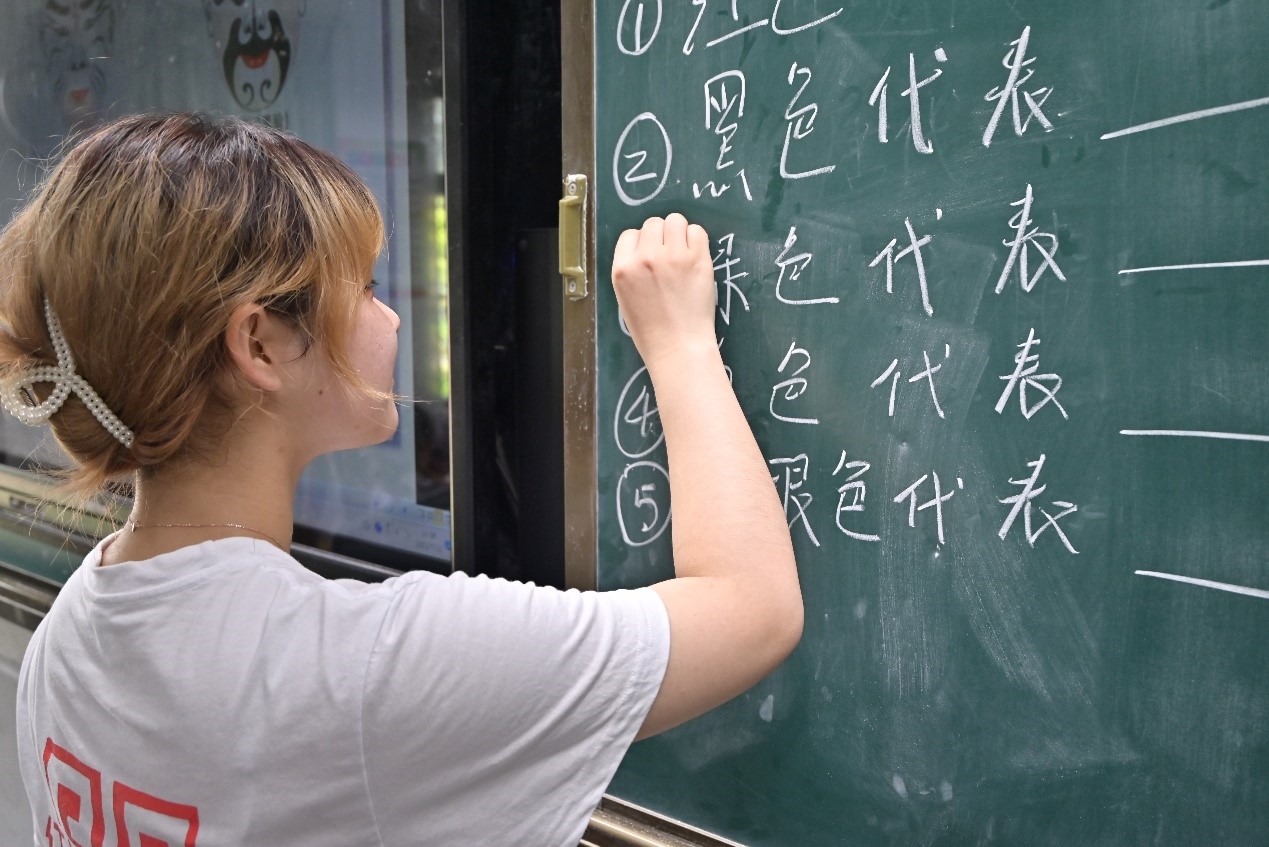 ① 红色
② 黑色代表
色代表
④ 色代表
⑤ 银色代表